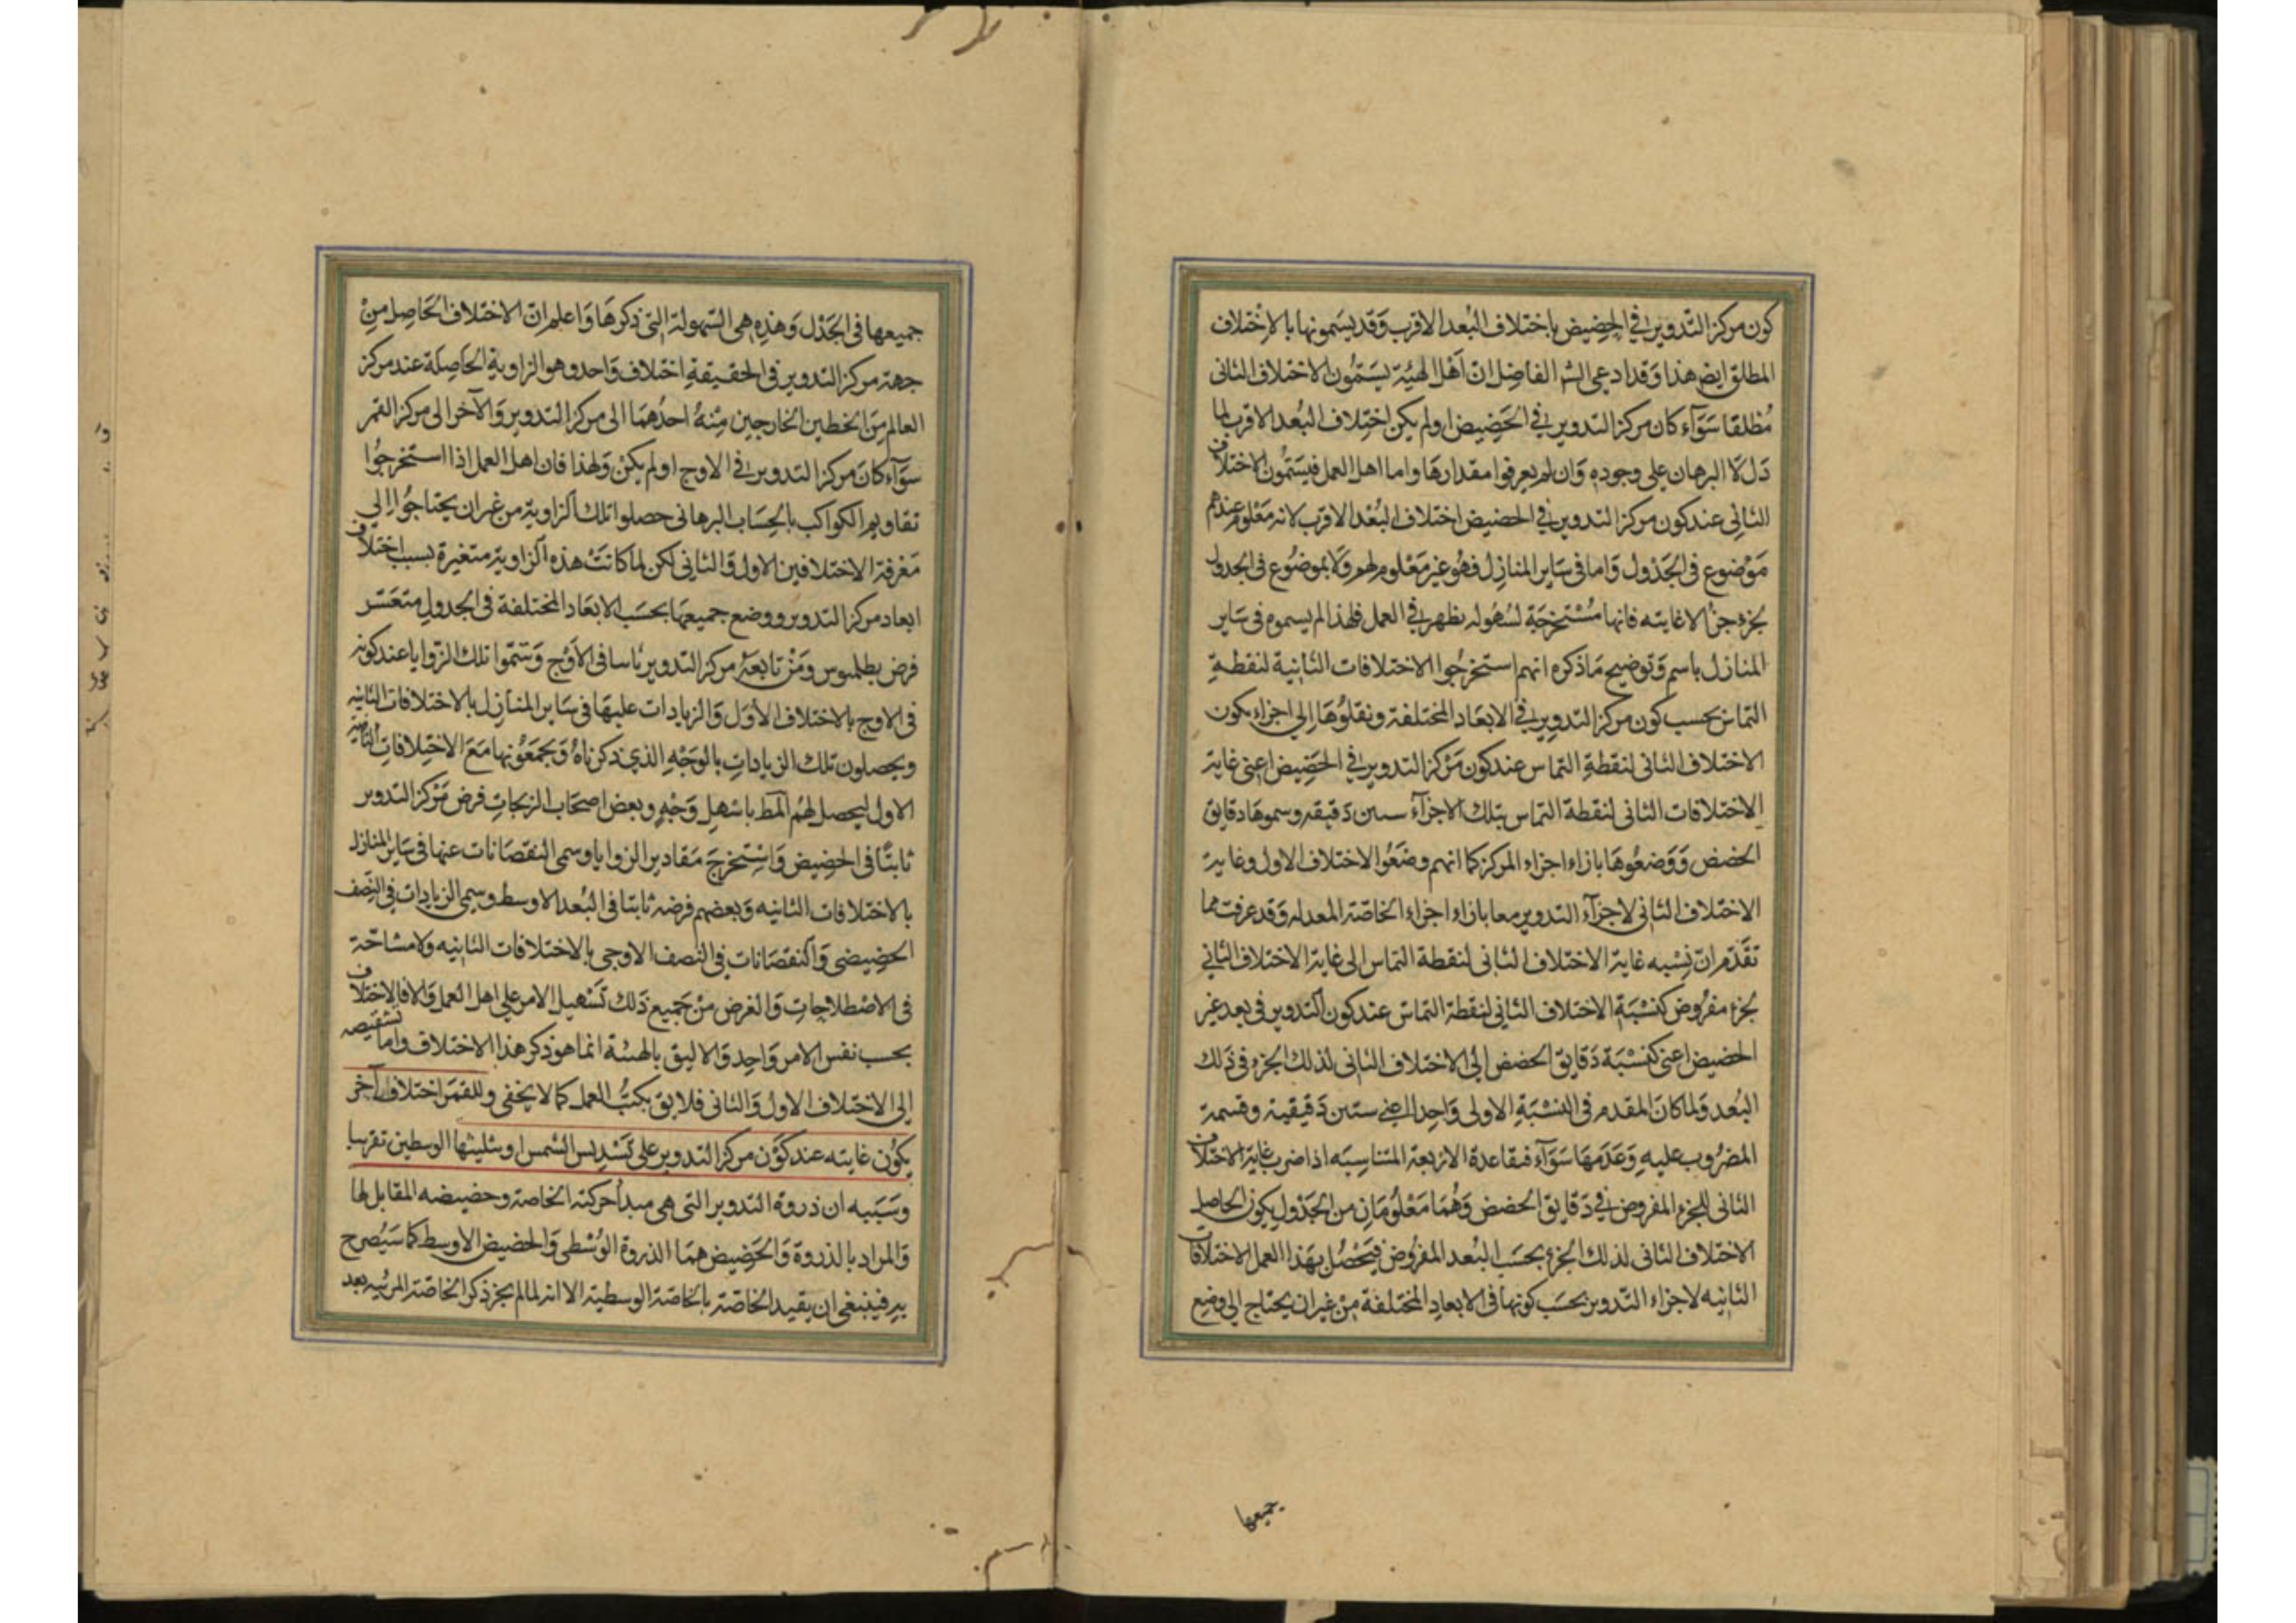 كون مركز التدوير في الحضيض باختلاف البُعد الاقرب وَقد يسَمونها بالاختلاف
المطلق ايض هذا وَقد ادعى الشر الفاضل ان اَهل الهيئة يسَمُّون الاختلاف الثانى
مُطلقا سَوَآء كان مركز التدوير في الحَضِيض او لم يكن اختِلاف البُعد الاقرب لما
دَل لا البرهان على وجوده وَان لم يعرفوا مقدارهَا واما اهل العمل فيسَمُّون الاختلاف
الثانى عند كون مركز التدوير في الحضيض اختلاف البُعْد الاقرب لانه مَعْلوم عندهم
مَوْضوع فى الجَدْول وَاما فى سَاير المنازِل فهُو غير مَعْلوم لهم وَلا بموضُوع فى الجدول
بجزء جزء الا غايته فانها مُسْتخرجَة لسُهُوله يظهر في العمل فلهذا لم يسموه فى سَاير
المنازل باسم وَتوضيح مَا ذكره انهم استخرجُوا الاختلافات الثانية لنقطةِ
التماس بحسب كون مركز التدوِير في الابعَاد المختلفة ونقلوُهَا اِلى اجزاء يكون
الاختلاف الثانى لنقطةِ التماس عند كون مَرْكز التدوير في الحَضِيض اعنى غاية
الاختلافات الثانى لنقطة التماس بتلك الاجزآء ستين دَقيقه وسموهَا دقايق
الحضض وَوَضعُوهَا بازاء اجزاء المركز كما انهم وضَعُوا الاختلاف الاول وغاية
الاختلاف الثانى لاجزآء التدوير معا بازاء اجزاء الخاصّة المعدله وَقد عرفت مما
تقَدَّم انّ نِسْبه غاية الاختلاف الثانى لنقطة التماس الى غاية الاختلاف الثاني
بجزء مفرُوض كنسْبَةِ الاختلاف الثانِى لنقطة التماسّ عند كون التدوير فى بعد غير
الحضيض اعنى كنسْبَة دَقايق الحضض اِلى الاختلاف الثانى لذلك الجزء فى ذلك
البُعد وَلما كانَ المقدم فى النسْبَةِ الاولى وَاحِدا اعني ستين دَقيقية وقسمة
المضرُوب عليهِ وَعَدَمهَا سَوَآء فبقاعدة الاربَعة المتناسِبَه اذا ضرب غاية الاختلاف
الثانى للجزء المفروض في دَقايق الحضض وَهُمَا مَعْلُومَانِ من الجَدْول يكون الحاصل
الاختلاف الثانى لذلك الجزء بحسَب البُعد المفرُوض فيَحْصُل بهَذا العمل الاختلافات
الثانِيه لاجزاء التّدوير بحسَب كونها فى الابعادِ المختلفة مِنْ غير ان يحتاج الى وضع
جميعها
جميعها فى الجَدْل وَهذِهِ هى السّهولة التى ذكرهَا وَاعلم انّ الاختلاف الحَاصِل مِنْ
جهة مركز التدوير فى الحقيقةِ اختلاف وَاحد وهو الزاوية الحَاصِلَة عند مركز
العالم مِنَ الخطين الخارجين مِنْهُ احدُهمَا الى مركز التدوير وَالآخر الى مركز القمر
سوَآء كانَ مركز التدوير في الاوج او لم يكنْ وَلهذا فان اهل العمل اذا استخرجُوا
تقاويم الكواكب بالحِسَاب البرهانى حصلوا تلك الزاوية من غير ان يحتاجوُا اِلى
مَعْرفة الاختلافين الاول وَالثانِى لكن لما كانَتْ هذه الزاوية متغيرة بسبب اختلاف
ابعاد مركز التدوير ووضع جميعهَا بحسَب الابعَاد المختلفة فى الجدول متعَسّر
فرض بطلميوس ومَنْ تابعَهُ مركز التدوير ثابتا فى الاَوْج وَسَمّوا تلك الزوايا عند كونه
فى الاوج بالاختلاف الاَوَل وَالزيادات عليهَا فى سَاير المنازِل بالاختلافات الثانيه
ويحصلون تلك الزيادات بالوَجْهِ الذي ذكرناهُ وَيجمَعُونها مَعَ الاختِلافات الثانيه
الاول ليحصل لهُم المط باسهل وَجْهٍ وبعض اصحَاب الزيجاتِ فرض مَرْكز التدوير
ثابتًا فى الحضِيض وَاسْتخرجَ مَقادير الزوايا وسمى النقصَانات عنها فى سَاير المنازل
بالاختلافات الثانيه وَبعضهم فرضه ثابتا فى البُعد الاوسط وسمى الزيادات فى النِصف
الحضِيضى وَالنقصَانات فى النصف الاوجى بالاختلافات الثانِيه ولا مشاحّة
فى الاصْطلاحاتِ وَالغرض مِنْ جَميع ذَلك تَسْهيل الامر على اهل العمل وَالا فالاختلاف
بحسب نفس الامر وَاحِد وَالاليق بالهيئة انما هو ذكر هذا الاختلاف واما تشقيصه
اِلى الاختلاف الاول وَالثانى فلايق بكتُب العمل كما لا يخفى وللقمَر اختلاف آخر
يكوُن غايته عند كوْن مركز التدوير على تَسْديس الشمس او تثليثها الوسطين تقريبا
وسَبَبه ان ذروة التدوير التى هى مبدأ حركته الخاصة وحضيضه المقابل لها
وَالمراد بالذروة وَالحَضِيض همَا الذروة الوُسْطى وَالحضيض الاوسط كما سَيُصرح
به فينبغى ان يقيد الخاصّة بالخاصَة الوسطية الا انه لما لم يجز ذكر الخاصّة المرئيه بعد